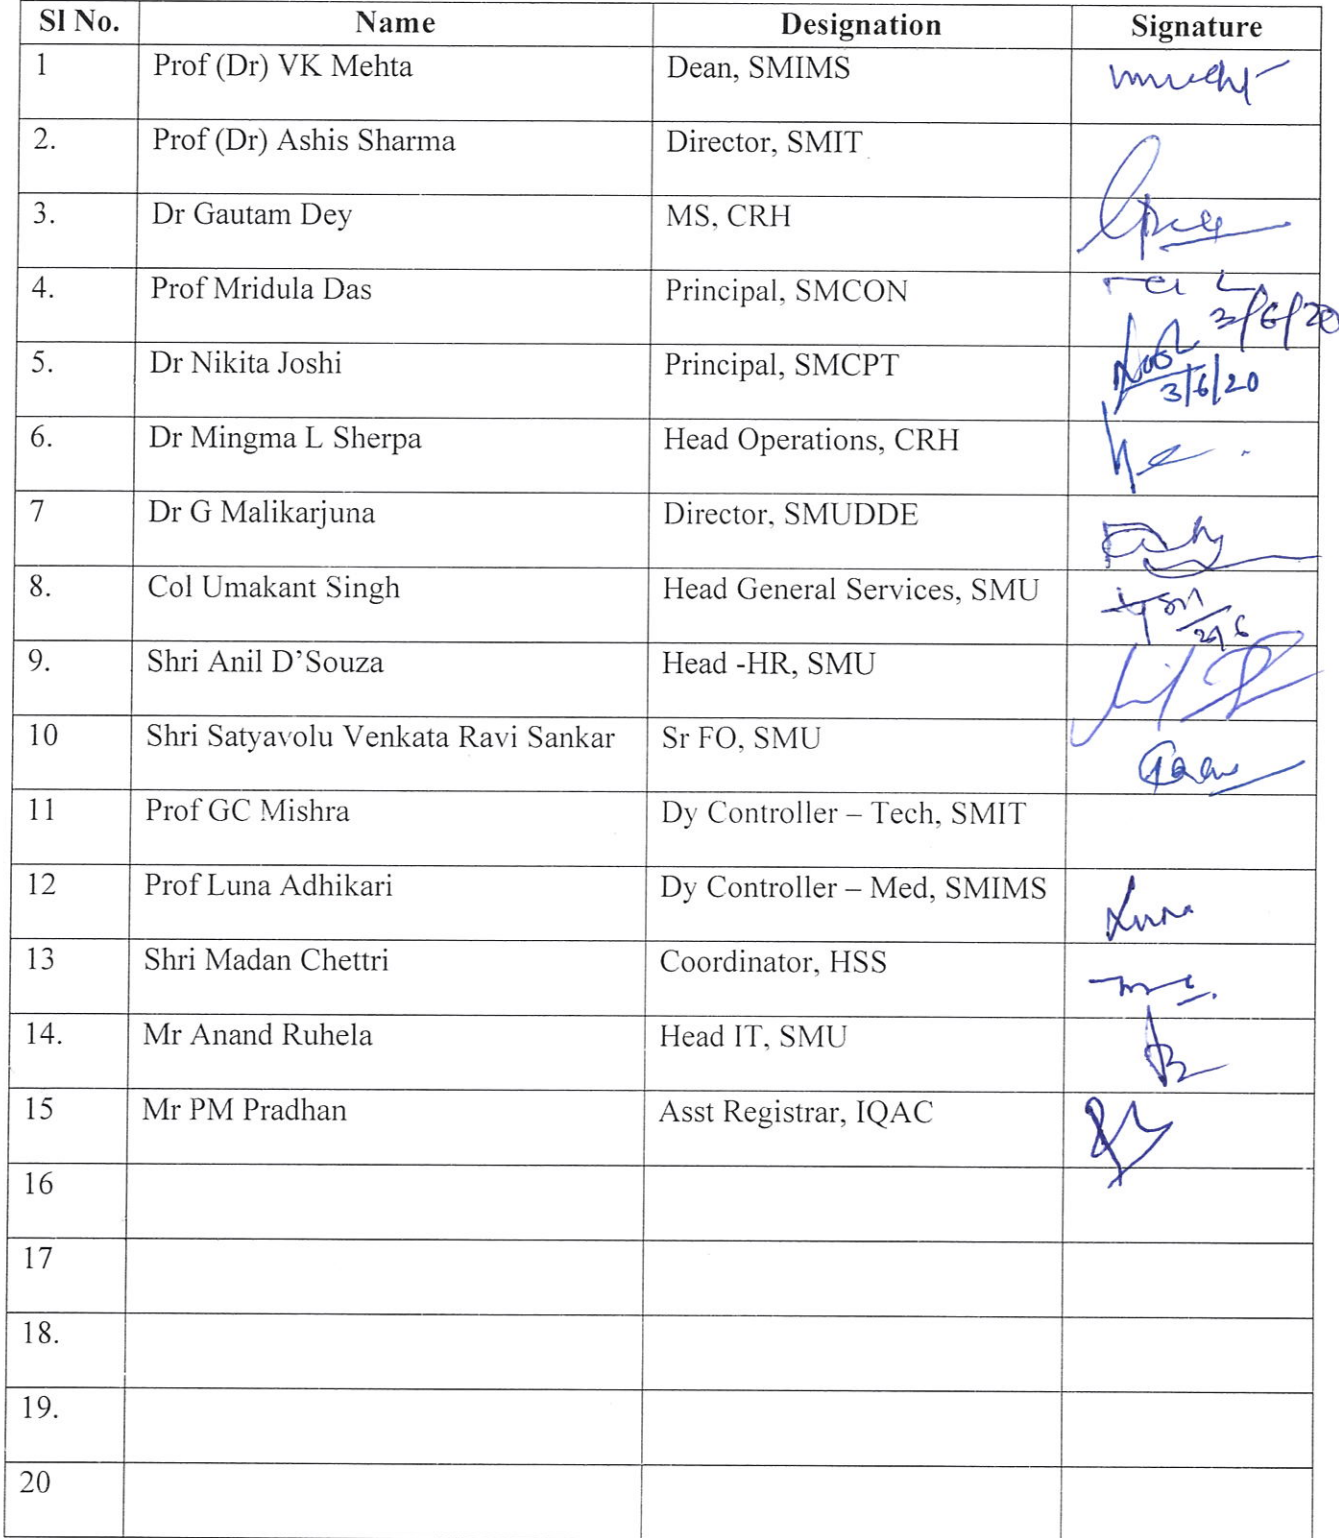 Sl No. Name Designation Signature
1 Prof (Dr) VK Mehta Dean, SMIMS
2. Prof (Dr) Ashis Sharma Director, SMIT
3. Dr Gautam Dey MS, CRH
4. Prof Mridula Das Principal, SMCON
3/6/20
5. Dr Nikita Joshi Principal, SMCPT
3/6/20
6. Dr Mingma L Sherpa Head Operations, CRH
7 Dr G Malikarjuna Director, SMUDDE
8. Col Umakant Singh Head General Services, SMU
9. Shri Anil D’Souza Head -HR, SMU
10 Shri Satyavolu Venkata Ravi Sankar Sr FO, SMU
11 Prof GC Mishra Dy Controller – Tech, SMIT
12 Prof Luna Adhikari Dy Controller – Med, SMIMS Luna
13 Shri Madan Chettri Coordinator, HSS
14. Mr Anand Ruhela Head IT, SMU
15 Mr PM Pradhan Asst Registrar, IQAC
16
17
18.
19.
20